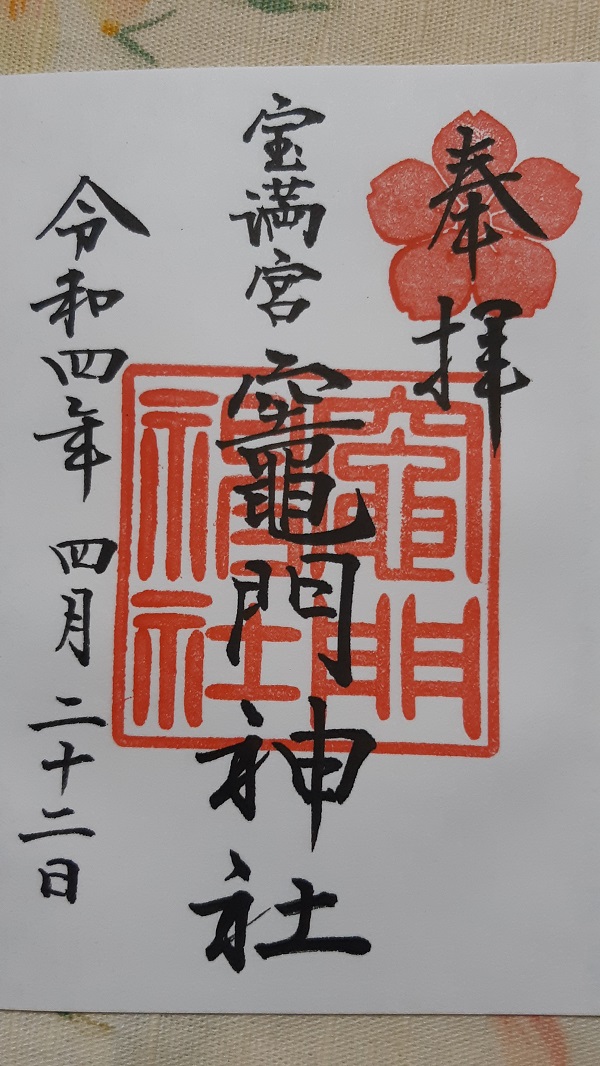 奉拝
宝満宮
竈門神社
竈門神社
令和四年 四月 二十二日